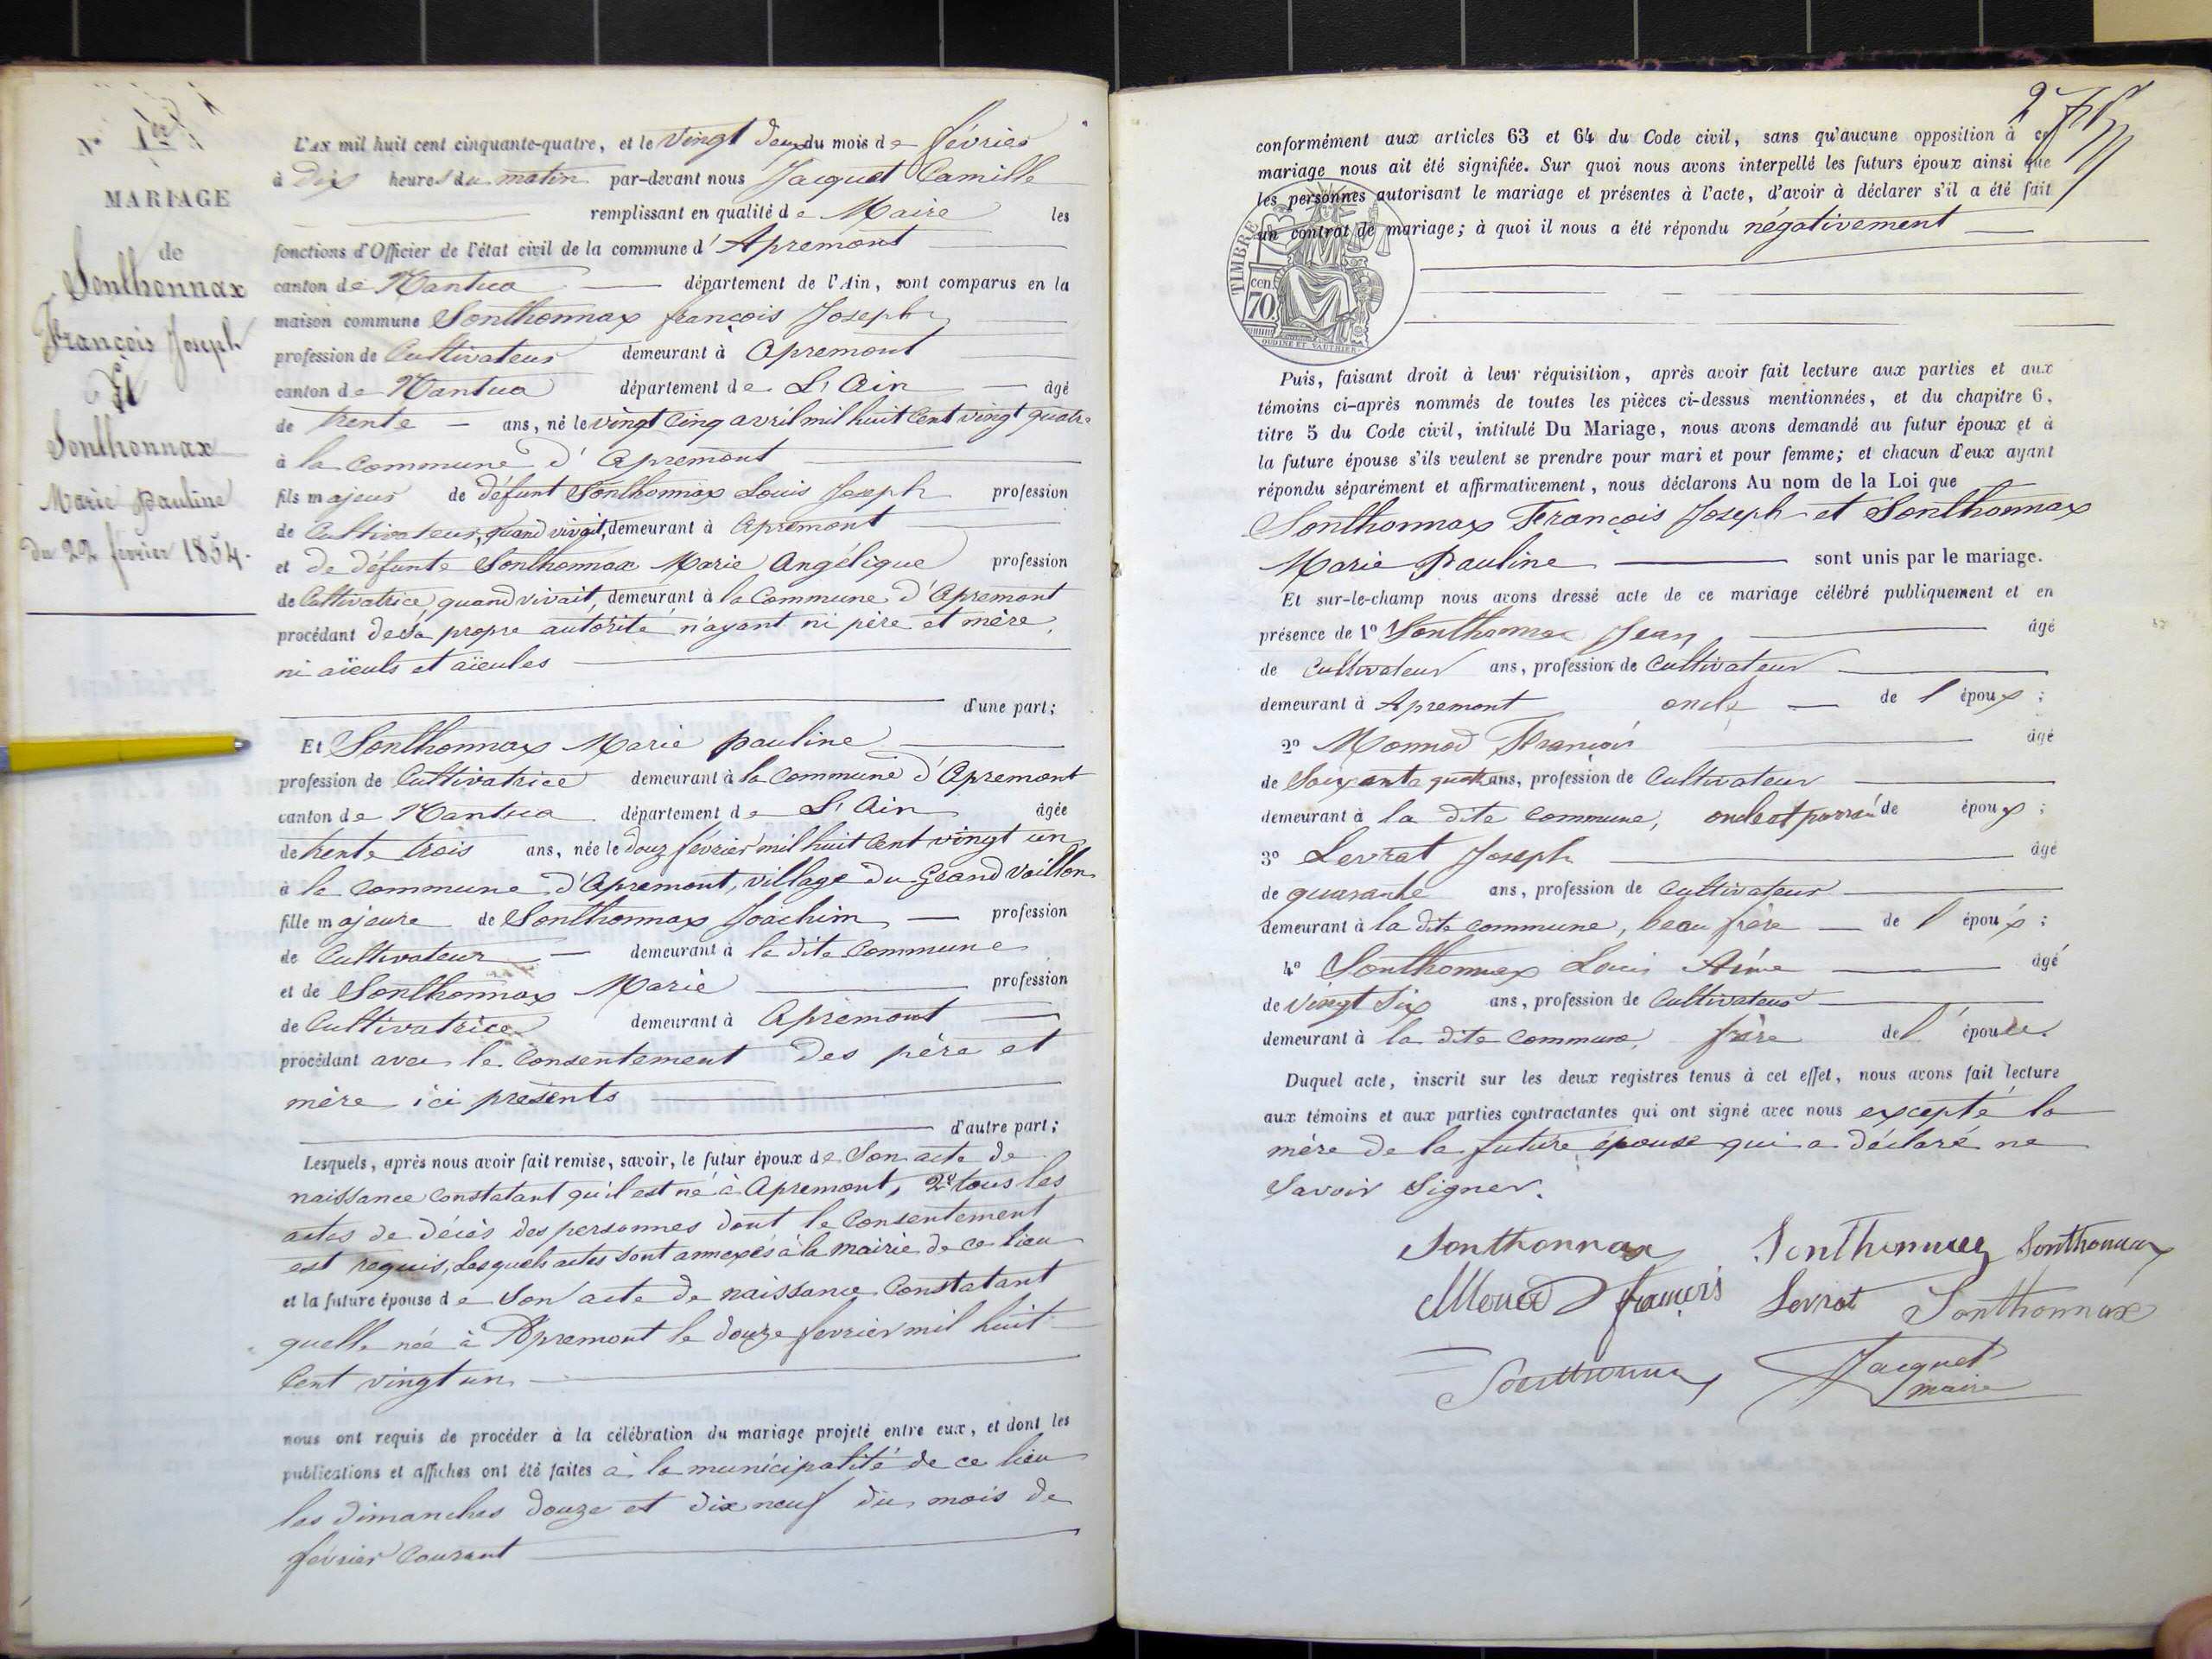 N° 1er
MARIAGE
de
Sonthonnax
François Joseph
Et
Sonthonnax
Marie Pauline
du 22 février 1854.
L'AN mil huit cent cinquante-quatre, et le vingt deux du mois de février
à dix heures du matin par-devant nous Jacquet Camille
remplissant en qualité de Maire les
fonctions d'Officier de l'état civil de la commune d'Apremont
canton de Nantua département de l'Ain, sont comparus en la
maison commune Sonthonnax françois Joseph
profession de Cultivateur demeurant à Apremont
canton de Nantua département de L'Ain âgé
de trente ans, né le vingt cinq avril mil huit cent vingt quatre
à la commune d'Apremont
fils majeur de défunt Sonthonnax Louis Joseph profession
de Cultivateur, quand vivait, demeurant à Apremont
et de défunte Sonthonnax Marie Angélique profession
de Cultivatrice, quand vivait, demeurant à la Commune d'Apremont
procédant de sa propre autorité n'ayant ni père et mère,
ni aïeuls et aïeules
d'une part;
Et Sonthonnax Marie pauline
profession de Cultivatrice demeurant à la Commune d'Apremont
canton de Nantua département de L'Ain âgée
de trente trois ans, née le douz février mil huit cent vingt un
à la commune d'Apremont, village du Grand Vaillon
fille majeure de Sonthonnax Joachim profession
de Cultivateur demeurant à la dite Commune
et de Sonthonnax Marie profession
de Cultivatrice demeurant à Apremont
procédant avec le consentement des père et
mère ici présents
d'autre part;
Lesquels, après nous avoir fait remise, savoir, le futur époux de Son acte de
naissance constatant qu'il est né à Apremont, 2° tous les
actes de décès des personnes dont le consentement
est requis, lesquels actes sont annexés à la mairie de ce lieu
et la future épouse de Son acte de naissance Constatant
quelle née à Apremont le douze fevrier mil huit
Cent vingt un
nous ont requis de procéder à la célébration du mariage projeté entre eux, et dont les
publications et affiches ont été faites à la municipalité de ce lieu
les dimanches douze et dix neuf du mois de
février Courant
2
conformément aux articles 63 et 64 du Code civil, sans qu'aucune opposition à ce
mariage nous ait été signifiée. Sur quoi nous avons interpellé les futurs époux ainsi que
les personnes autorisant le mariage et présentes à l'acte, d'avoir à déclarer s'il a été fait
un contrat de mariage; à quoi il nous a été répondu négativement
TIMBRE
cen.
70
OUDINÉ ET VAUTHIER
Puis, faisant droit à leur réquisition, après avoir fait lecture aux parties et aux
témoins ci-après nommés de toutes les pièces ci-dessus mentionnées, et du chapitre 6,
titre 5 du Code civil, intitulé Du Mariage, nous avons demandé au futur époux et à
la future épouse s'ils veulent se prendre pour mari et pour femme; et chacun d'eux ayant
répondu séparément et affirmativement, nous déclarons Au nom de la Loi que
Sonthonnax François Joseph et Sonthonnax
Marie Pauline sont unis par le mariage.
Et sur-le-champ nous avons dressé acte de ce mariage célébré publiquement et en
présence de 1° Sonthonnax Jean âgé
de Cultivateur ans, profession de Cultivateur
demeurant à Apremont oncle de l'époux;
2° Monnod François âgé
de Soixante quatre ans, profession de Cultivateur
demeurant à la dite commune, oncle et parrain de époux;
3° Levrat Joseph âgé
de quarante ans, profession de Cultivateur
demeurant à la dite commune, beau frère de l'époux;
4° Sonthonnax Louis Aimé âgé
de Vingt Six ans, profession de Cultivateur
demeurant à la dite commune, frère de l'épouse.
Duquel acte, inscrit sur les deux registres tenus à cet effet, nous avons fait lecture
aux témoins et aux parties contractantes qui ont signé avec nous excepté la
mère de la future épouse qui a déclaré ne
Savoir Signer.
Sonthonnax Sonthonnax Sonthonnax
Monod françois Levrat Sonthonnax
Sonthonnax Jacquet
maire